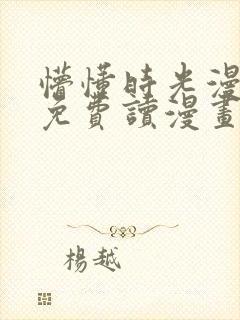 懵懂時光漫
免費讀漫畫
楊越